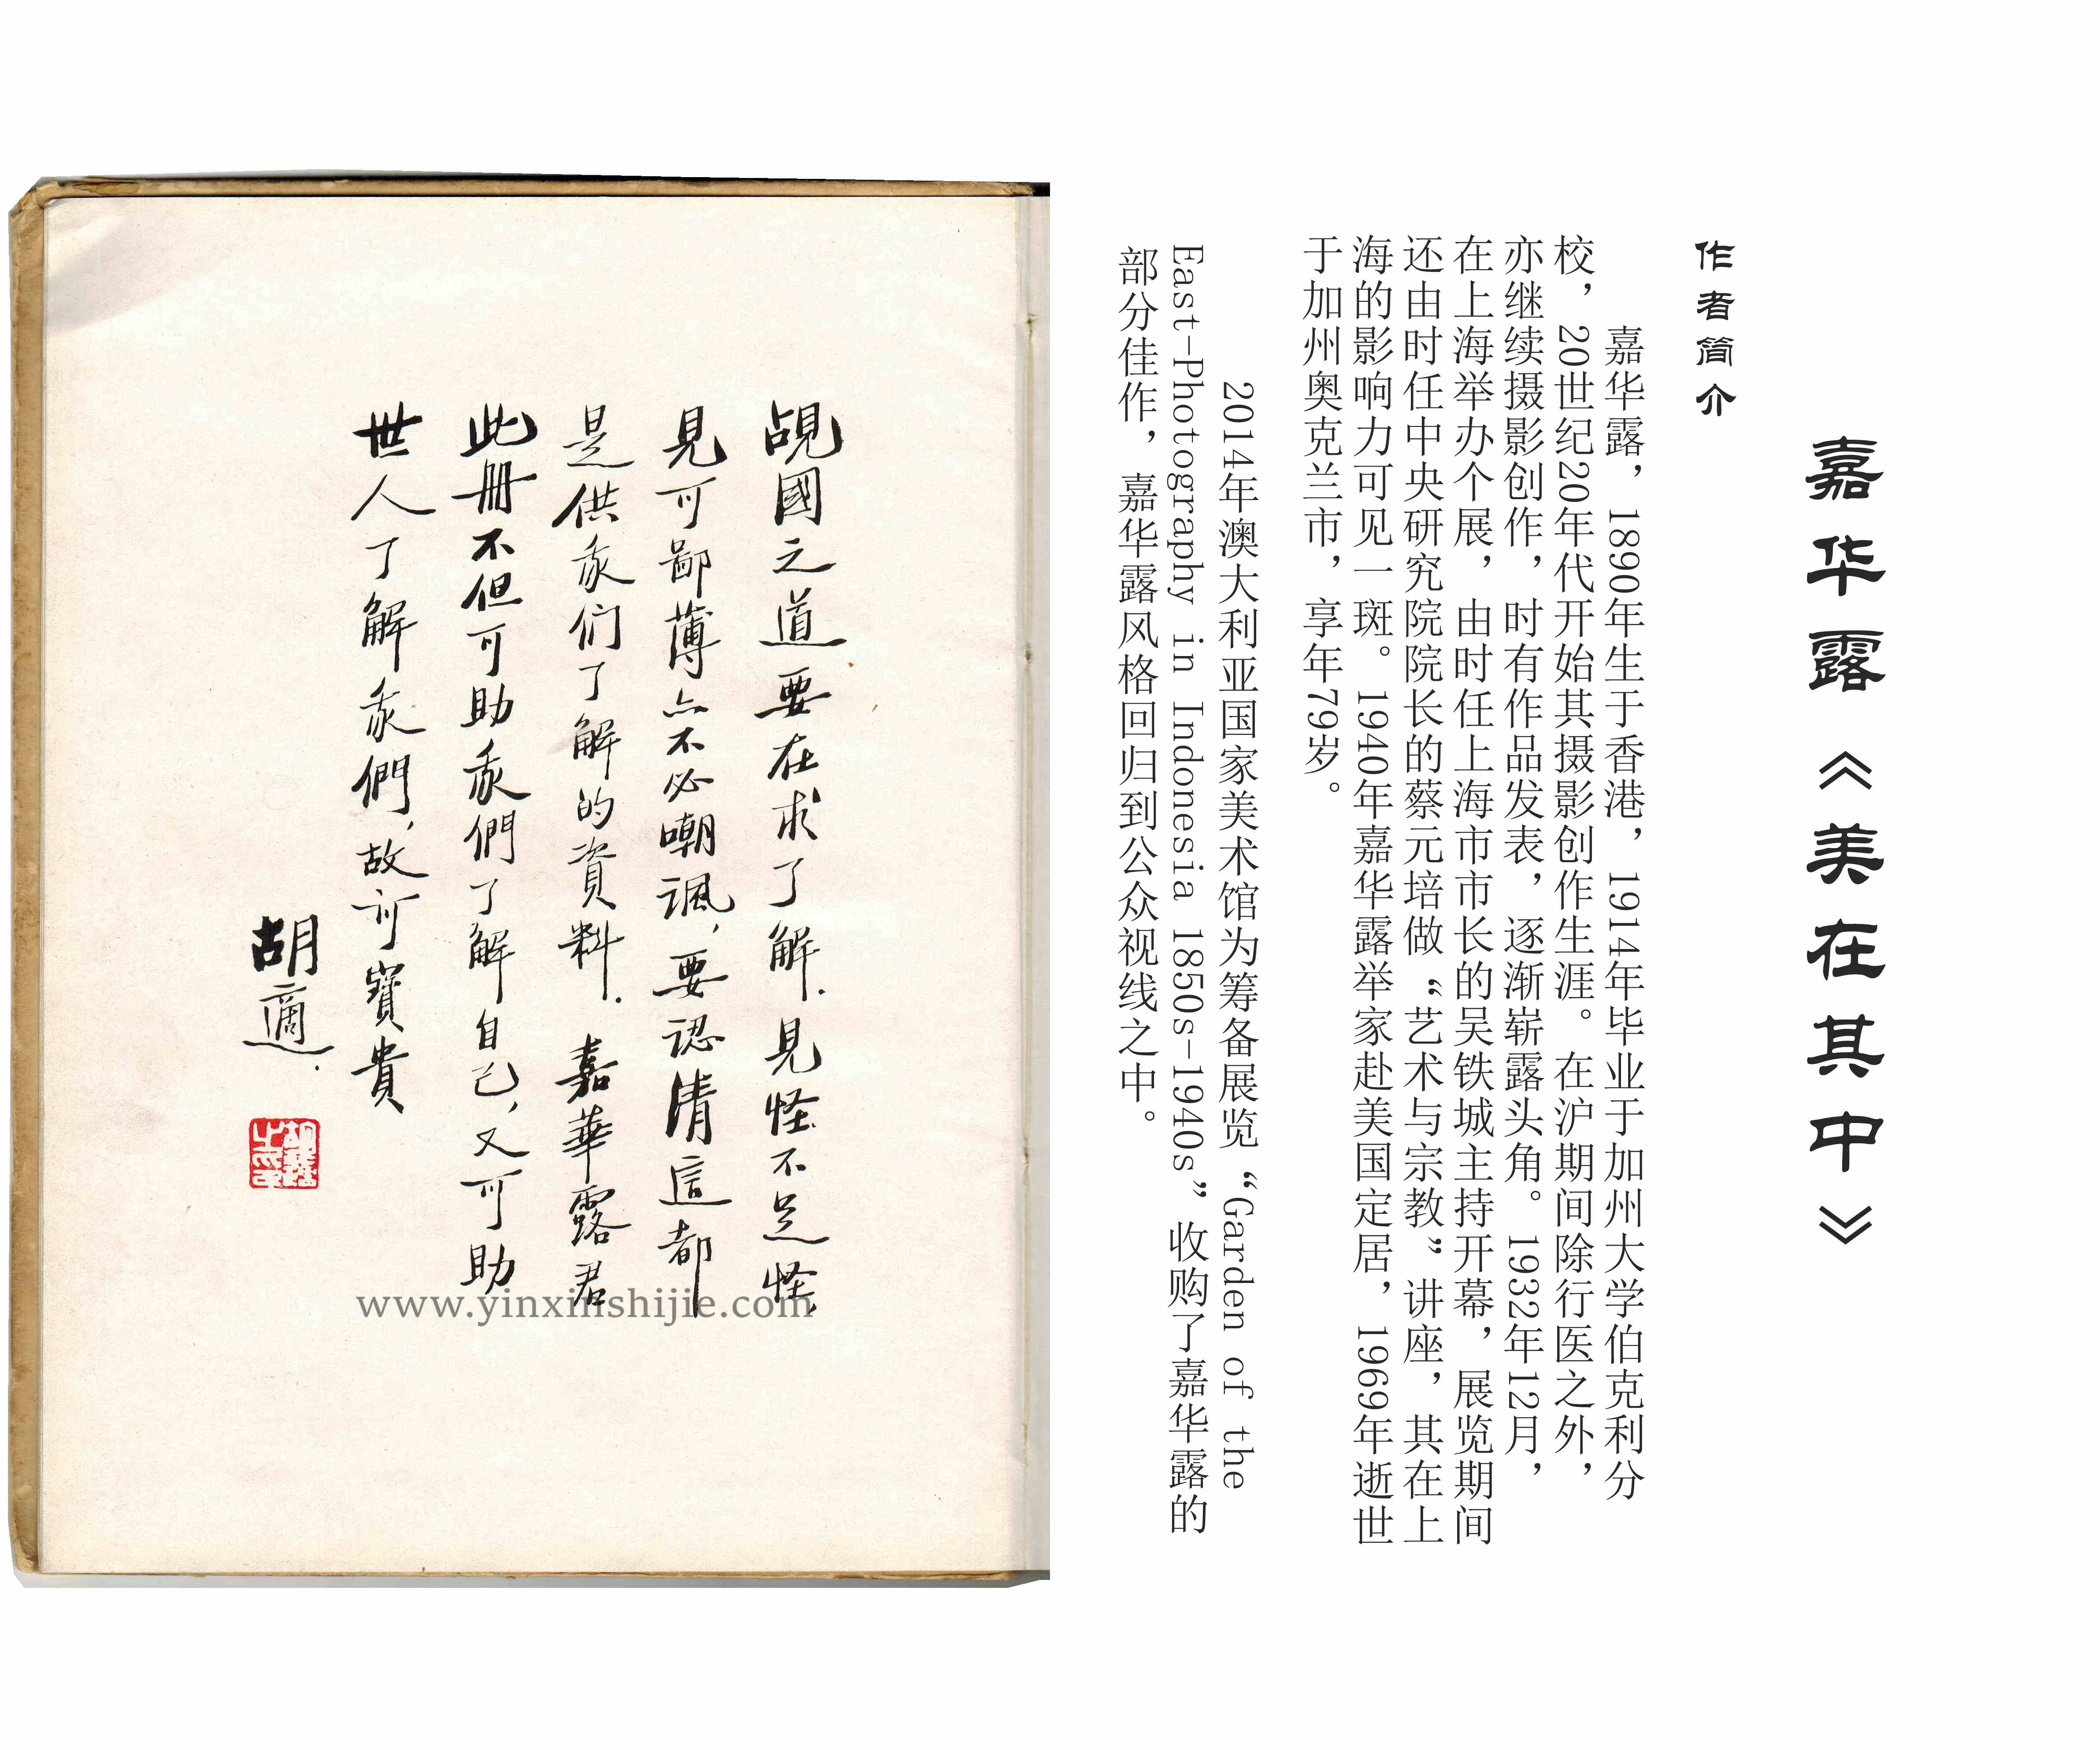 嘉华露《美在其中》
作者简介
嘉华露，1890年生于香港，1914年毕业于加州大学伯克利分
校，20世纪20年代开始其摄影创作生涯。在沪期间除行医之外，
亦继续摄影创作，时有作品发表，逐渐崭露头角。1932年12月，
在上海举办个展，由时任上海市市长的吴铁城主持开幕，展览期间
还由时任中央研究院院长的蔡元培做“艺术与宗教”讲座，其在上
海的影响力可见一斑。1940年嘉华露举家赴美国定居，1969年逝世
于加州奥克兰市，享年79岁。
2014年澳大利亚国家美术馆为筹备展览“Garden of the
East-Photography in Indonesia 1850s-1940s”收购了嘉华露的
部分佳作，嘉华露风格回归到公众视线之中。
覘國之道要在求了解.見怪不足怪,
見可鄙薄亦不必嘲諷,要認清這都
是供我们了解的資料.嘉華露君
此冊不但可助我們了解自己,又可助
世人了解我們,故可寶貴
胡適.
www.yinxinshijie.com